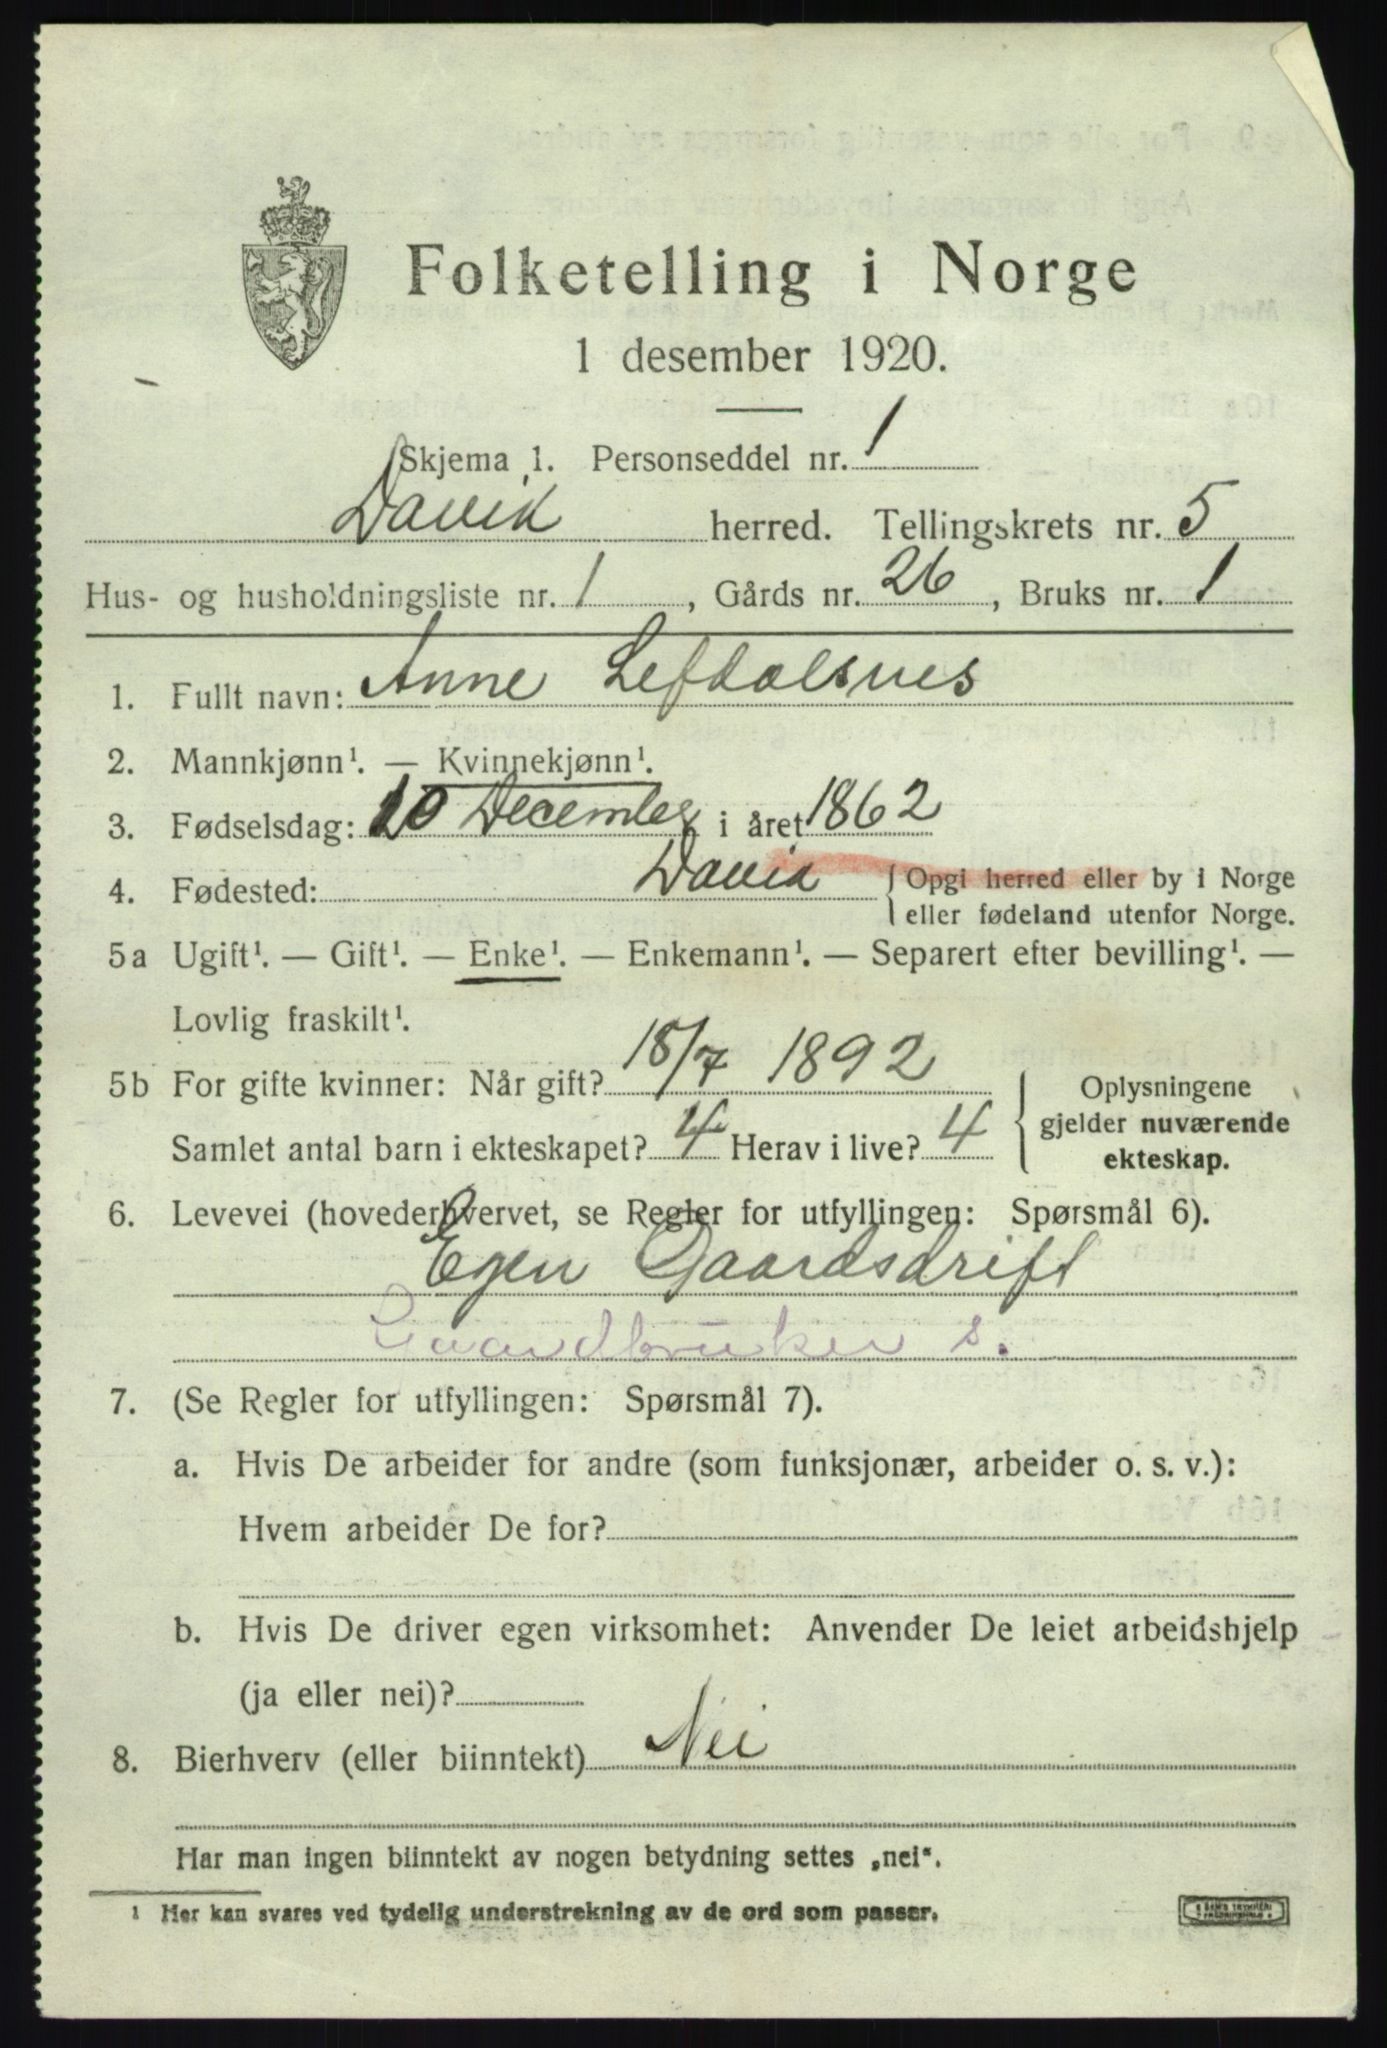 Folketelling i Norge
1 desember 1920.
Skjema 1. Personseddel nr. 1
Davik herred. Tellingskrets nr. 5
Hus- og husholdningsliste nr. 1, Gårds nr. 26, Bruks nr. 1
1. Fullt navn: Anne Lefdalsnes
2. Mannkjønn¹. — Kvinnekjønn¹.
3. Fødselsdag: December i året 1862
4. Fødested: Davik { Opgi herred eller by i Norge
eller fødeland utenfor Norge.
5a Ugift¹. — Gift¹. — Enke¹. — Enkemann¹. — Separert efter bevilling¹. —
Lovlig fraskilt¹.
5b For gifte kvinner: Når gift? 18/7 1892
Samlet antal barn i ekteskapet? 4 Herav i live? 4
Oplysningene
gjelder nuværende
ekteskap.
6. Levevei (hovederhvervet, se Regler for utfyllingen: Spørsmål 6).
Egen Gaardsdrift
Gaardbruker s.
7. (Se Regler for utfyllingen: Spørsmål 7).
a. Hvis De arbeider for andre (som funksjonær, arbeider o. s. v.):
Hvem arbeider De for?
b. Hvis De driver egen virksomhet: Anvender De leiet arbeidshjelp
(ja eller nei)?
8. Bierhverv (eller biinntekt) Nei
Har man ingen biinntekt av nogen betydning settes „nei“.
¹ Her kan svares ved tydelig understrekning av de ord som passer.